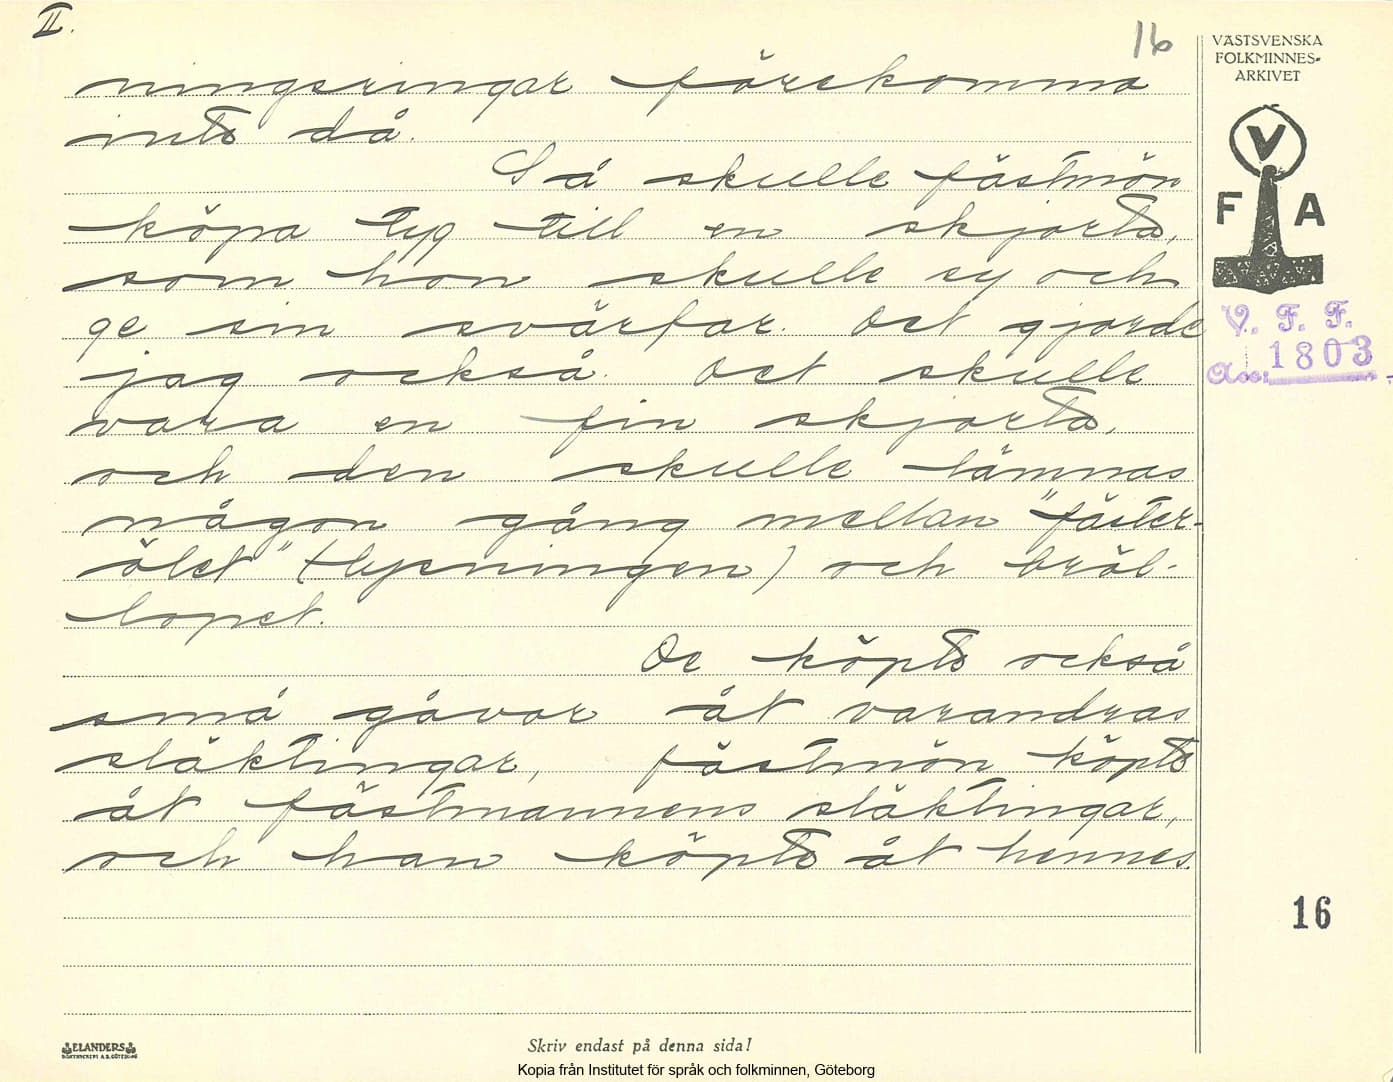 II.
16
ningsringar förekomma
inte då.
Så skulle fästmön
köpa tyg till en skjorta,
som hon skulle sy och
ge sin svärfar. Det gjorde
jag också. Det skulle
vara en fin skjorta,
och den skulle lämnas
någon gång mellan "fäster-
ölet" (lysningen) och bröl-
lopet.
De köpte också
små gåvor åt varandras
släktingar, fästmön köpte
åt fästmannens släktingar,
och han köpte åt hennes.
VÄSTSVENSKA
FOLKMINNES-
ARKIVET
V
F A
V. F. F.
Acc: 1803
16
ELANDERS
Skriv endast på denna sida!
Kopia från Institutet för språk och folkminnen, Göteborg